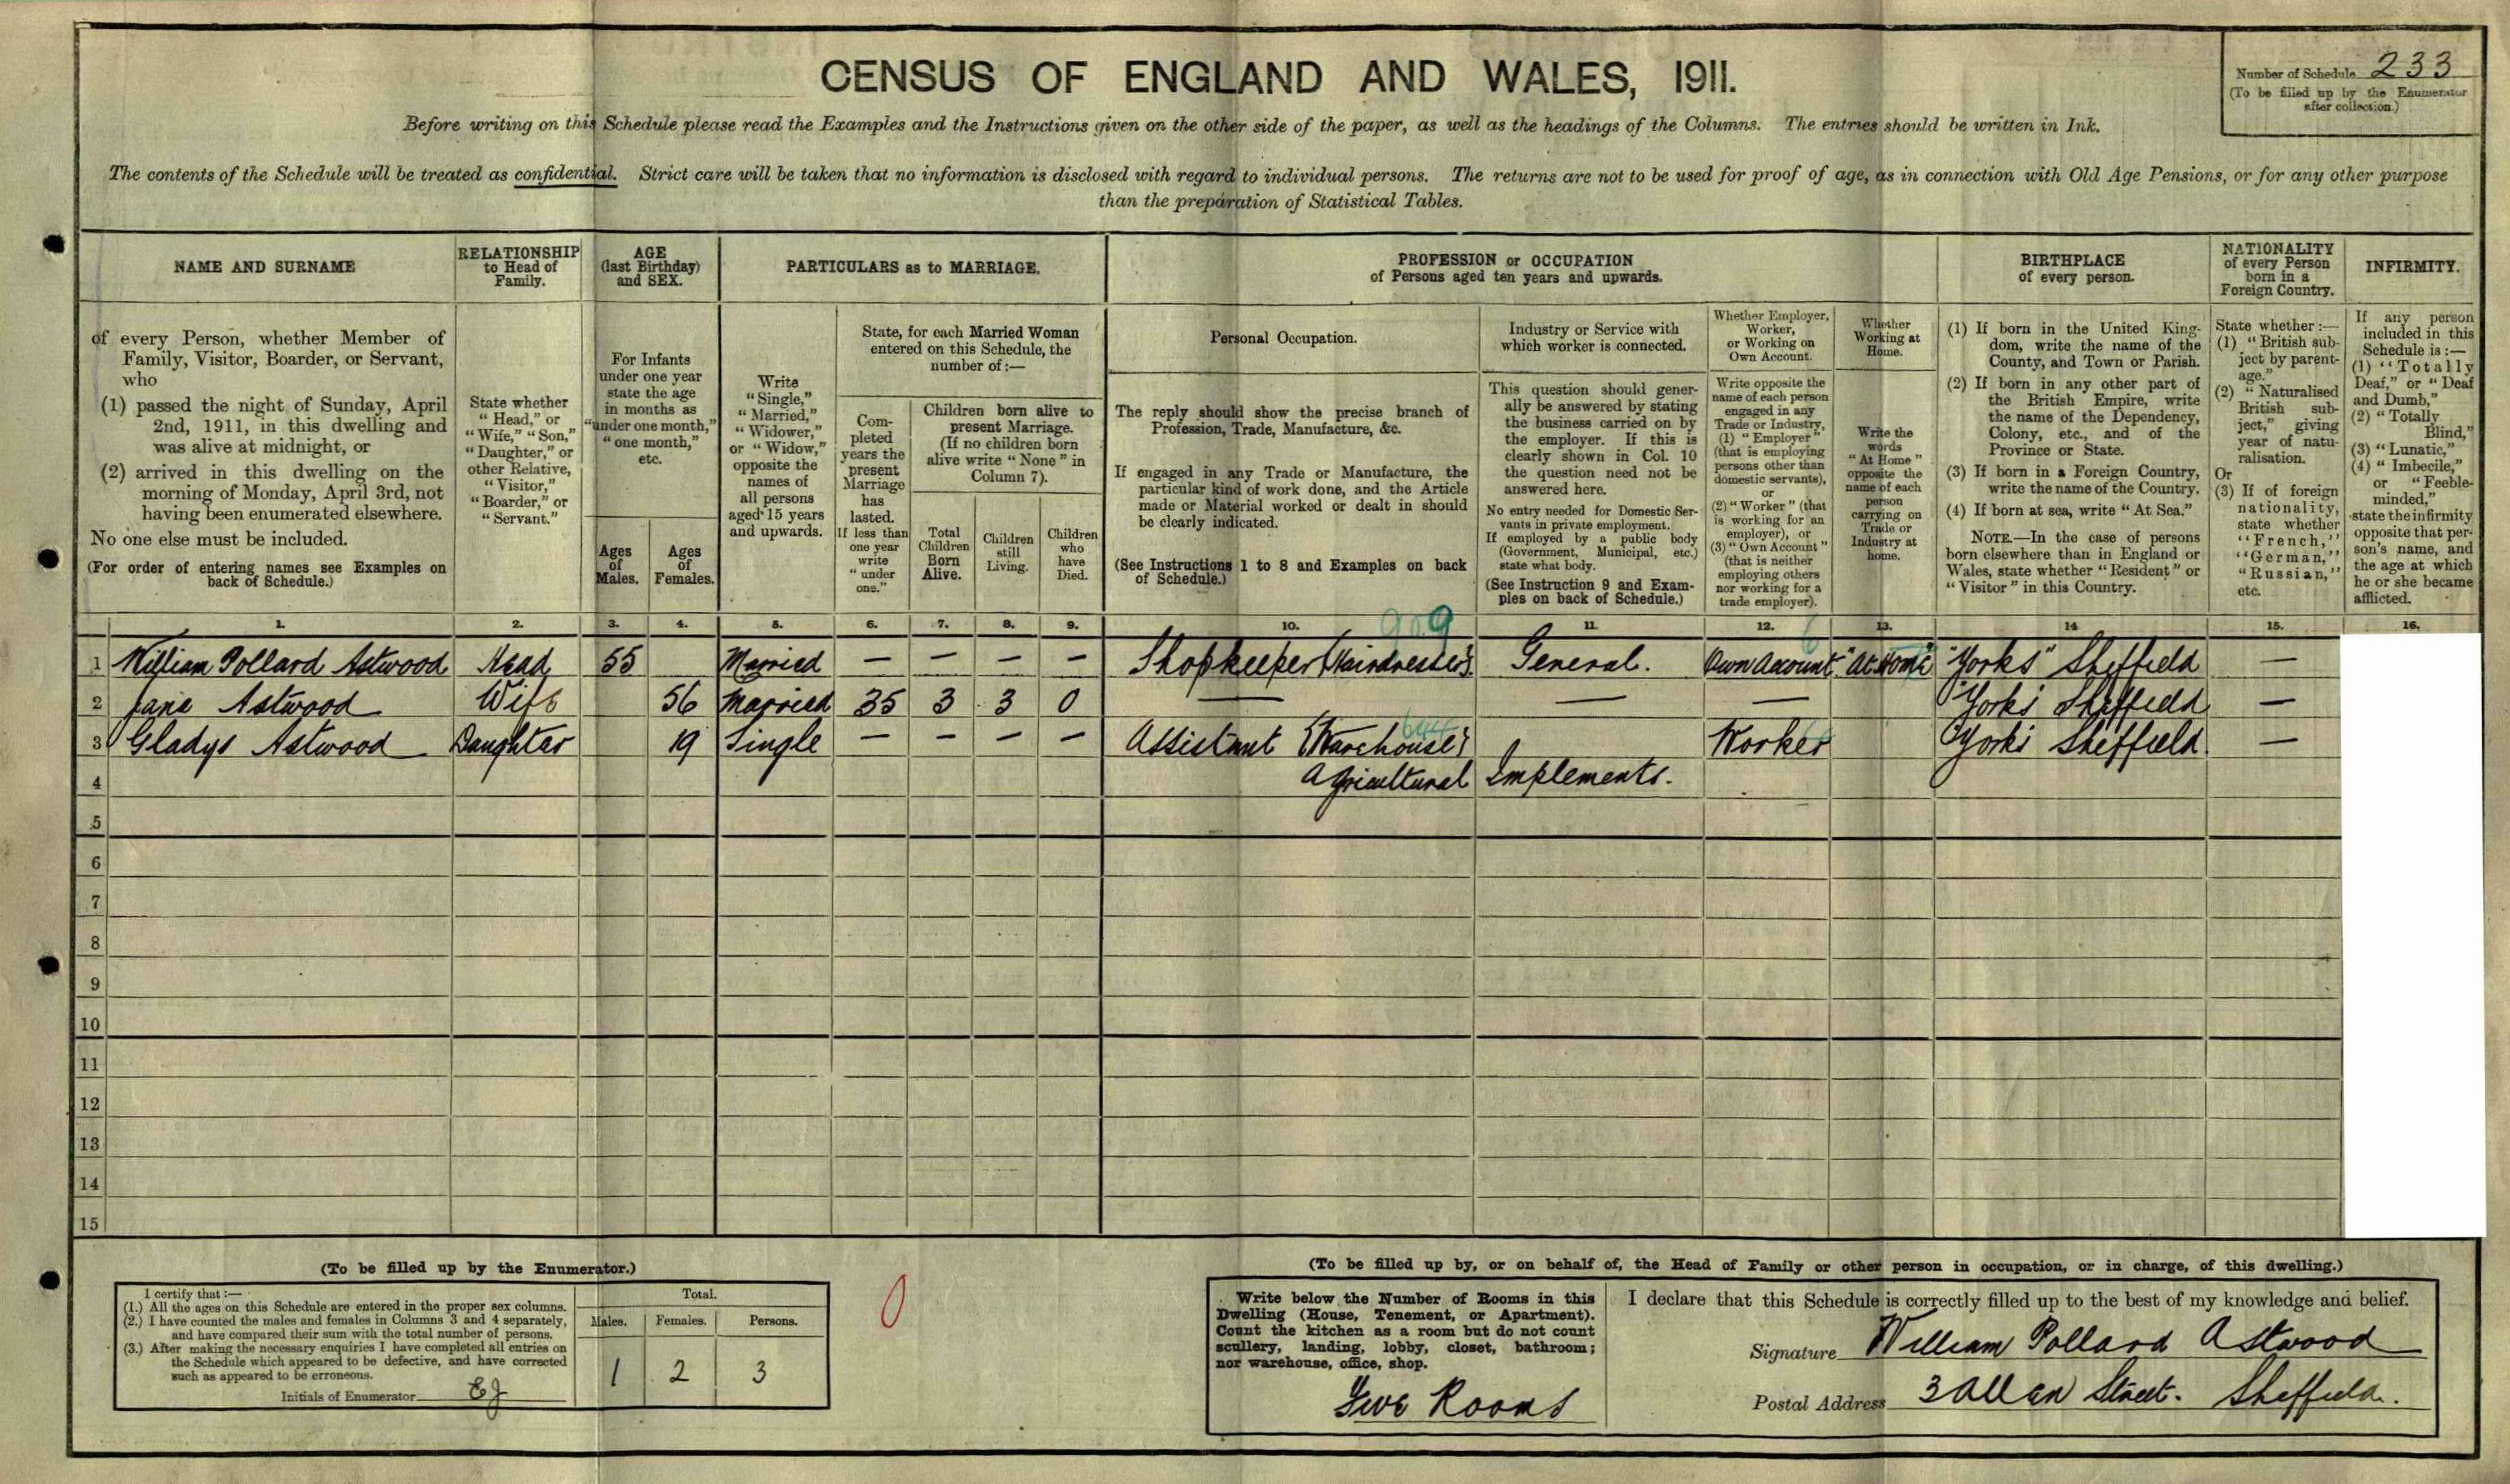 CENSUS OF ENGLAND AND WALES, 1911.
Number of Schedule 233
(To be filled up by the Enumerator
after collection.)
Before writing on this Schedule please read the Examples and the Instructions given on the other side of the paper, as well as the headings of the Columns. The entries should be written in Ink.
The contents of the Schedule will be treated as confidential. Strict care will be taken that no information is disclosed with regard to individual persons. The returns are not to be used for proof of age, as in connection with Old Age Pensions, or for any other purpose
than the preparation of Statistical Tables.
NAME AND SURNAME
of every Person, whether Member of
Family, Visitor, Boarder, or Servant,
who
(1) passed the night of Sunday, April
2nd, 1911, in this dwelling and
was alive at midnight, or
(2) arrived in this dwelling on the
morning of Monday, April 3rd, not
having been enumerated elsewhere.
No one else must be included.
(For order of entering names see Examples on
back of Schedule.)
RELATIONSHIP
to Head of
Family.
State whether
"Head," or
"Wife," "Son,"
"Daughter," or
other Relative,
"Visitor,"
"Boarder," or
"Servant."
AGE
(last Birthday)
and SEX.
For Infants
under one year
state the age
in months as
"under one month,"
"one month,"
etc.
Ages
of
Males.
Ages
of
Females.
PARTICULARS as to MARRIAGE.
Write
"Single,"
"Married,"
"Widower,"
or "Widow,"
opposite the
names of
all persons
aged 15 years
and upwards.
State, for each Married Woman
entered on this Schedule, the
number of:—
Com-
pleted
years the
present
Marriage
has
lasted.
If less than
one year
write
"under
one."
Children born alive to
present Marriage.
(If no children born
alive write "None" in
Column 7).
Total
Children
Born
Alive.
Children
still
Living.
Children
who
have
Died.
PROFESSION or OCCUPATION
of Persons aged ten years and upwards.
Personal Occupation.
The reply should show the precise branch of
Profession, Trade, Manufacture, &c.
If engaged in any Trade or Manufacture, the
particular kind of work done, and the Article
made or Material worked or dealt in should
be clearly indicated.
(See Instructions 1 to 8 and Examples on back
of Schedule.)
Industry or Service with
which worker is connected.
This question should gener-
ally be answered by stating
the business carried on by
the employer. If this is
clearly shown in Col. 10
the question need not be
answered here.
No entry needed for Domestic Ser-
vants in private employment.
If employed by a public body
(Government, Municipal, etc.)
state what body.
(See Instruction 9 and Exam-
ples on back of Schedule.)
Whether Employer,
Worker,
or Working on
Own Account.
Write opposite the
name of each person
engaged in any
Trade or Industry,
(1) "Employer"
(that is employing
persons other than
domestic servants),
or
(2) "Worker" (that
is working for an
employer), or
(3) "Own Account"
(that is neither
employing others
nor working for a
trade employer).
Whether
Working at
Home.
Write the
words
"At Home"
opposite the
name of each
person
carrying on
Trade or
Industry at
home.
BIRTHPLACE
of every person.
(1) If born in the United King-
dom, write the name of the
County, and Town or Parish.
(2) If born in any other part of
the British Empire, write
the name of the Dependency,
Colony, etc., and of the
Province or State.
(3) If born in a Foreign Country,
write the name of the Country.
(4) If born at sea, write "At Sea."
NOTE.—In the case of persons
born elsewhere than in England or
Wales, state whether "Resident" or
"Visitor" in this Country.
NATIONALITY
of every Person
born in a
Foreign Country.
State whether:—
(1) "British sub-
ject by parent-
age."
(2) "Naturalised
British sub-
ject," giving
year of natu-
ralisation.
Or
(3) If of foreign
nationality,
state whether
"French,"
"German,"
"Russian,"
etc.
INFIRMITY.
If any person
included in this
Schedule is:—
(1) "Totally
Deaf," or "Deaf
and Dumb,"
(2) "Totally
Blind,"
(3) "Lunatic,"
(4) "Imbecile,"
or "Feeble-
minded,"
state the infirmity
opposite that per-
son's name, and
the age at which
he or she became
afflicted.
1. 2. 3. 4. 5. 6. 7. 8. 9. 10. 11. 12. 13. 14 15. 16.
909 6
1 William Pollard Astwood Head 55 Married — — — — Shopkeeper (Hairdressers) General. Own Account "At Home" "Yorks" Sheffield —
2 Jane Astwood Wife 56 Married 35 3 3 0 — — — Yorks Sheffield —
3 Gladys Astwood Daughter 19 Single — — — — Assistant (Warehouse) Worker Yorks Sheffield. —
4 Agricultural Implements.
5
6
7
8
9
10
11
12
13
14
15
(To be filled up by the Enumerator.)
I certify that:—
(1.) All the ages on this Schedule are entered in the proper sex columns.
(2.) I have counted the males and females in Columns 3 and 4 separately,
and have compared their sum with the total number of persons.
(3.) After making the necessary enquiries I have completed all entries on
the Schedule which appeared to be defective, and have corrected
such as appeared to be erroneous.
Initials of Enumerator EJ
Total.
Males. Females. Persons.
1 2 3
0
(To be filled up by, or on behalf of, the Head of Family or other person in occupation, or in charge, of this dwelling.)
Write below the Number of Rooms in this
Dwelling (House, Tenement, or Apartment).
Count the kitchen as a room but do not count
scullery, landing, lobby, closet, bathroom;
nor warehouse, office, shop.
Five Rooms
I declare that this Schedule is correctly filled up to the best of my knowledge and belief.
Signature William Pollard Astwood
Postal Address 3 Allen Street. Sheffield.